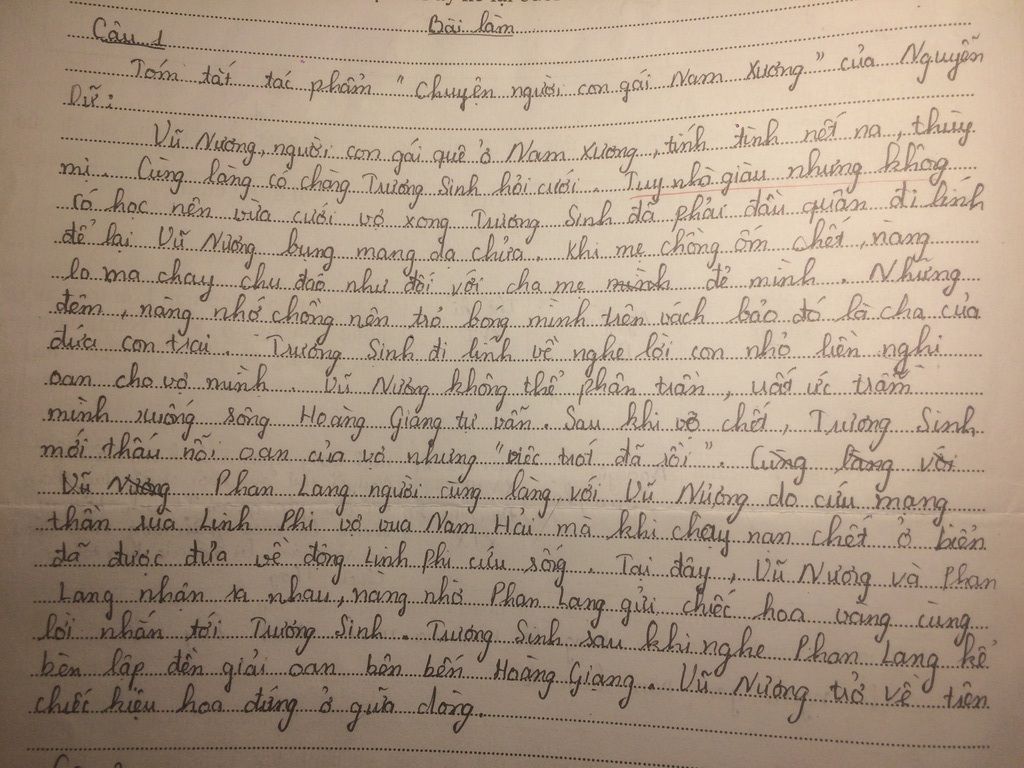 Bài làm
Câu 1
Tóm tắt tác phẩm "Chuyện người con gái Nam Xương" của Nguyễn
Dữ:
Vũ Nương, người con gái quê ở Nam Xương, tính tình nết na, thùy
mị. Cùng làng có chàng Trương Sinh hỏi cưới. Tuy nhà giàu nhưng không
có học nên vừa cưới vợ xong Trương Sinh đã phải đầu quân đi lính
để lại Vũ Nương bụng mang dạ chửa. Khi mẹ chồng ốm chết, nàng
lo ma chay chu đáo như đối với cha mẹ mình đẻ mình. Những
đêm, nàng nhớ chồng nên trỏ bóng mình trên vách bảo đó là cha của
đứa con trai. Trương Sinh đi lính về nghe lời con nhỏ liền nghi
oan cho vợ mình. Vũ Nương không thể phân trần, uất ức trầm
mình xuống sông Hoàng Giang tự vẫn. Sau khi vợ chết, Trương Sinh
mới thấu nỗi oan của vợ nhưng "việc trót đã rồi". Cùng làng với
Vũ Nương Phan Lang người cùng làng với Vũ Nương do cứu mạng
thần rùa Linh Phi vợ vua Nam Hải mà khi chạy nạn chết ở biển
đã được đưa về động Linh Phi cứu sống. Tại đây, Vũ Nương và Phan
Lang nhận ra nhau, nàng nhờ Phan Lang gửi chiếc hoa vàng cùng
lời nhắn tới Trương Sinh. Trương Sinh sau khi nghe Phan Lang kể
bèn lập đền giải oan bên bến Hoàng Giang. Vũ Nương trở về trên
chiếc kiệu hoa đứng ở giữa dòng.